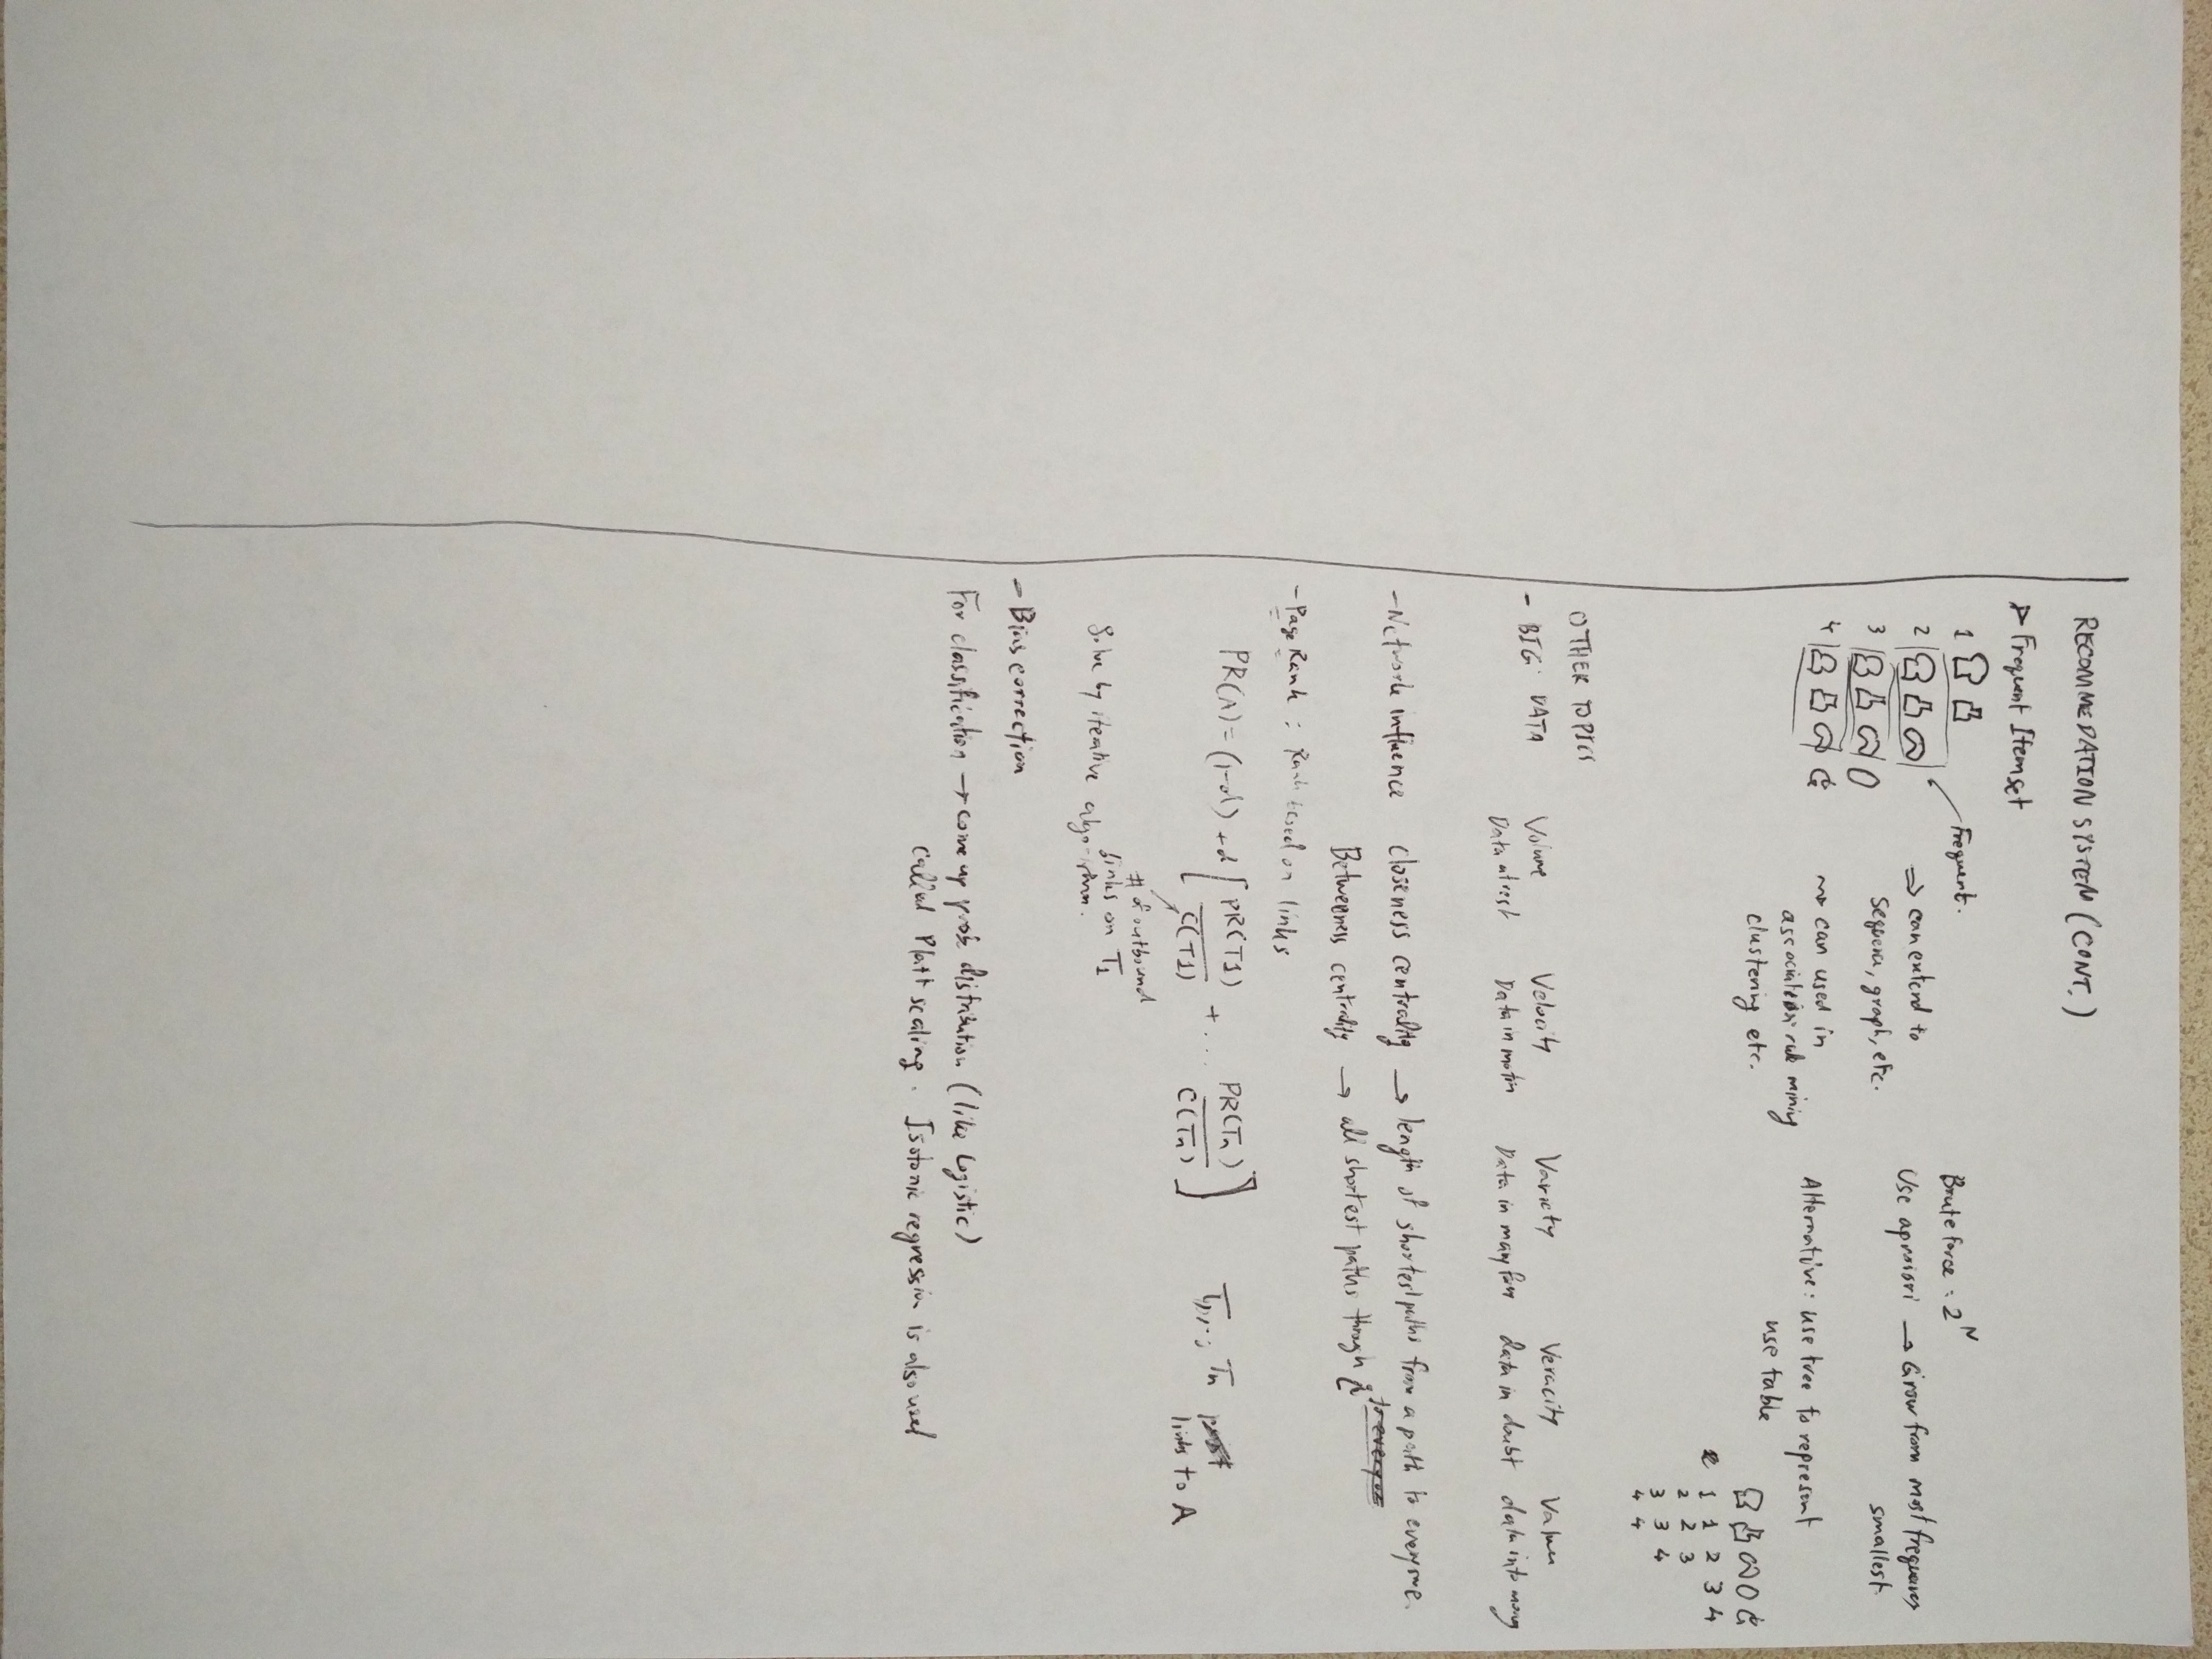 RECOMMEDATION SYSTEM (CONT.)
▷ Frequent Itemset
1
2
3
4
Frequent.
⇒ can extend to
sequence, graph, etc.
⇝ can used in
association rule mining
clustering etc.
Brute force : 2^N
Use aproiori → Grow from most frequency
smallest.
Alternative: use tree to represent
use table
1 1 2 3 4
2 2 3
3 3 4
4 4
OTHER TOPICS
- BIG DATA Volume Velocity Variety Veracity Value
Data at rest Data in motion Data in many form data in doubt data into money
- Network influence closeness centrality → length of shortest paths from a path to everyone.
Betweenness centrality → all shortest paths through i
- Page Rank : Rank based on links
PR(A) = (1-d) + d [ PR(T1)/C(T1) + ... PR(Tn)/C(Tn) ] T1,..., Tn links to A
# of outbound
links on T1
Solve by iterative algorithm.
- Bias correction
For classification → come up prob distribution (like Logistic)
called Platt scaling. Isotonic regression is also used